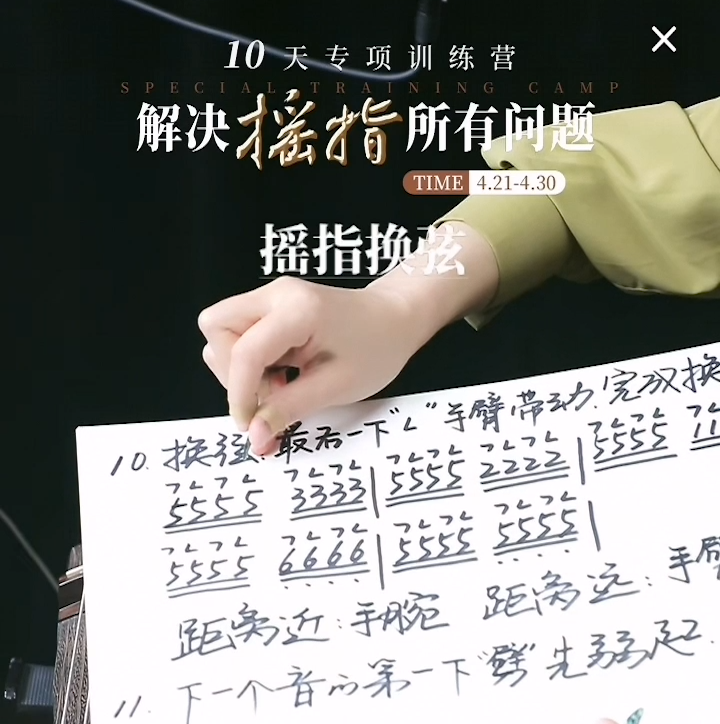 10 天专项训练营
SPECIAL TRAINING CAMP
解决摇指所有问题
TIME 4.21-4.30
摇指换弦
10. 换弦: 最后一下"ㄥ"手臂带动.完成换
5555 3333 | 5555 2222 | 5555 11
5555 6666 | 5555 5555 |
距离近:手腕 距离远:手臂
11. 下一个音的第一下"劈"先弱起.